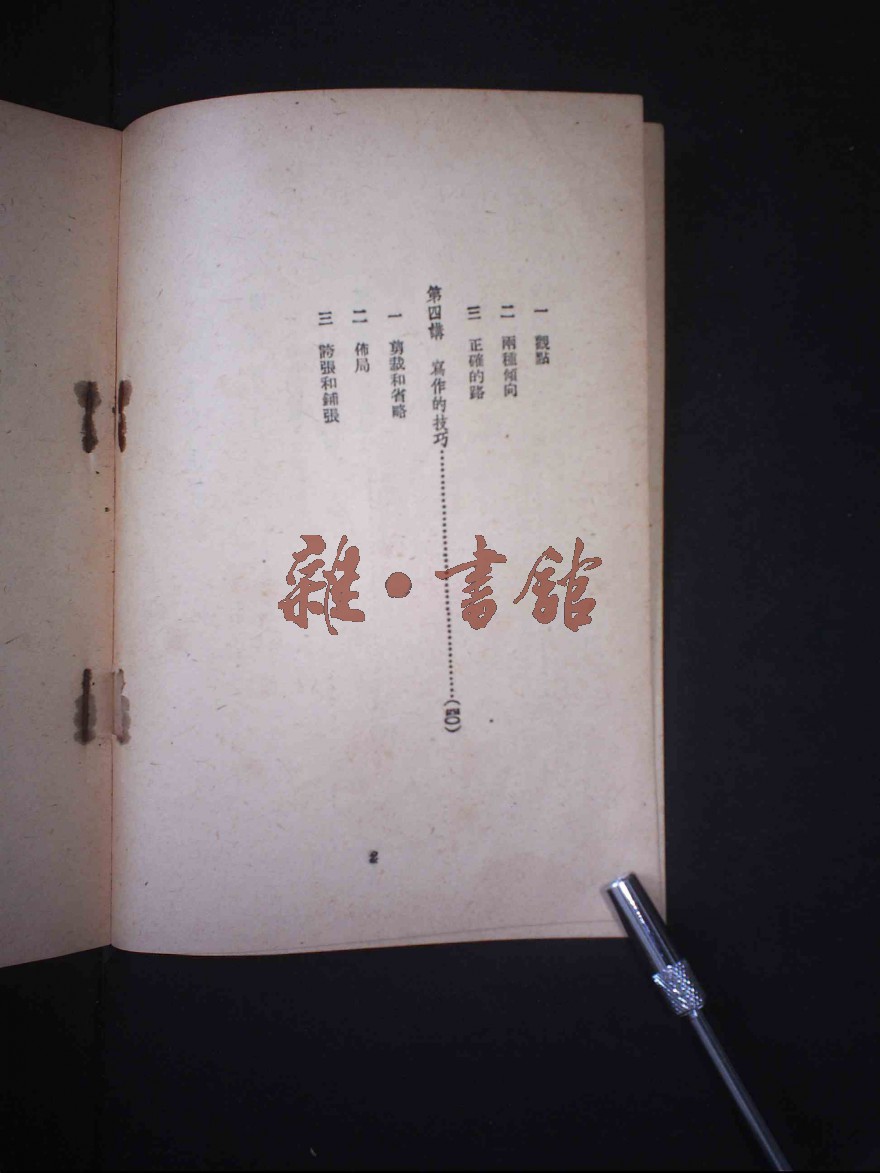 一　觀點
二　兩種傾向
三　正確的路
第四講　寫作的技巧……………………(50)
一　剪裁和省略
二　佈局
三　誇張和鋪張
2
雜・書館